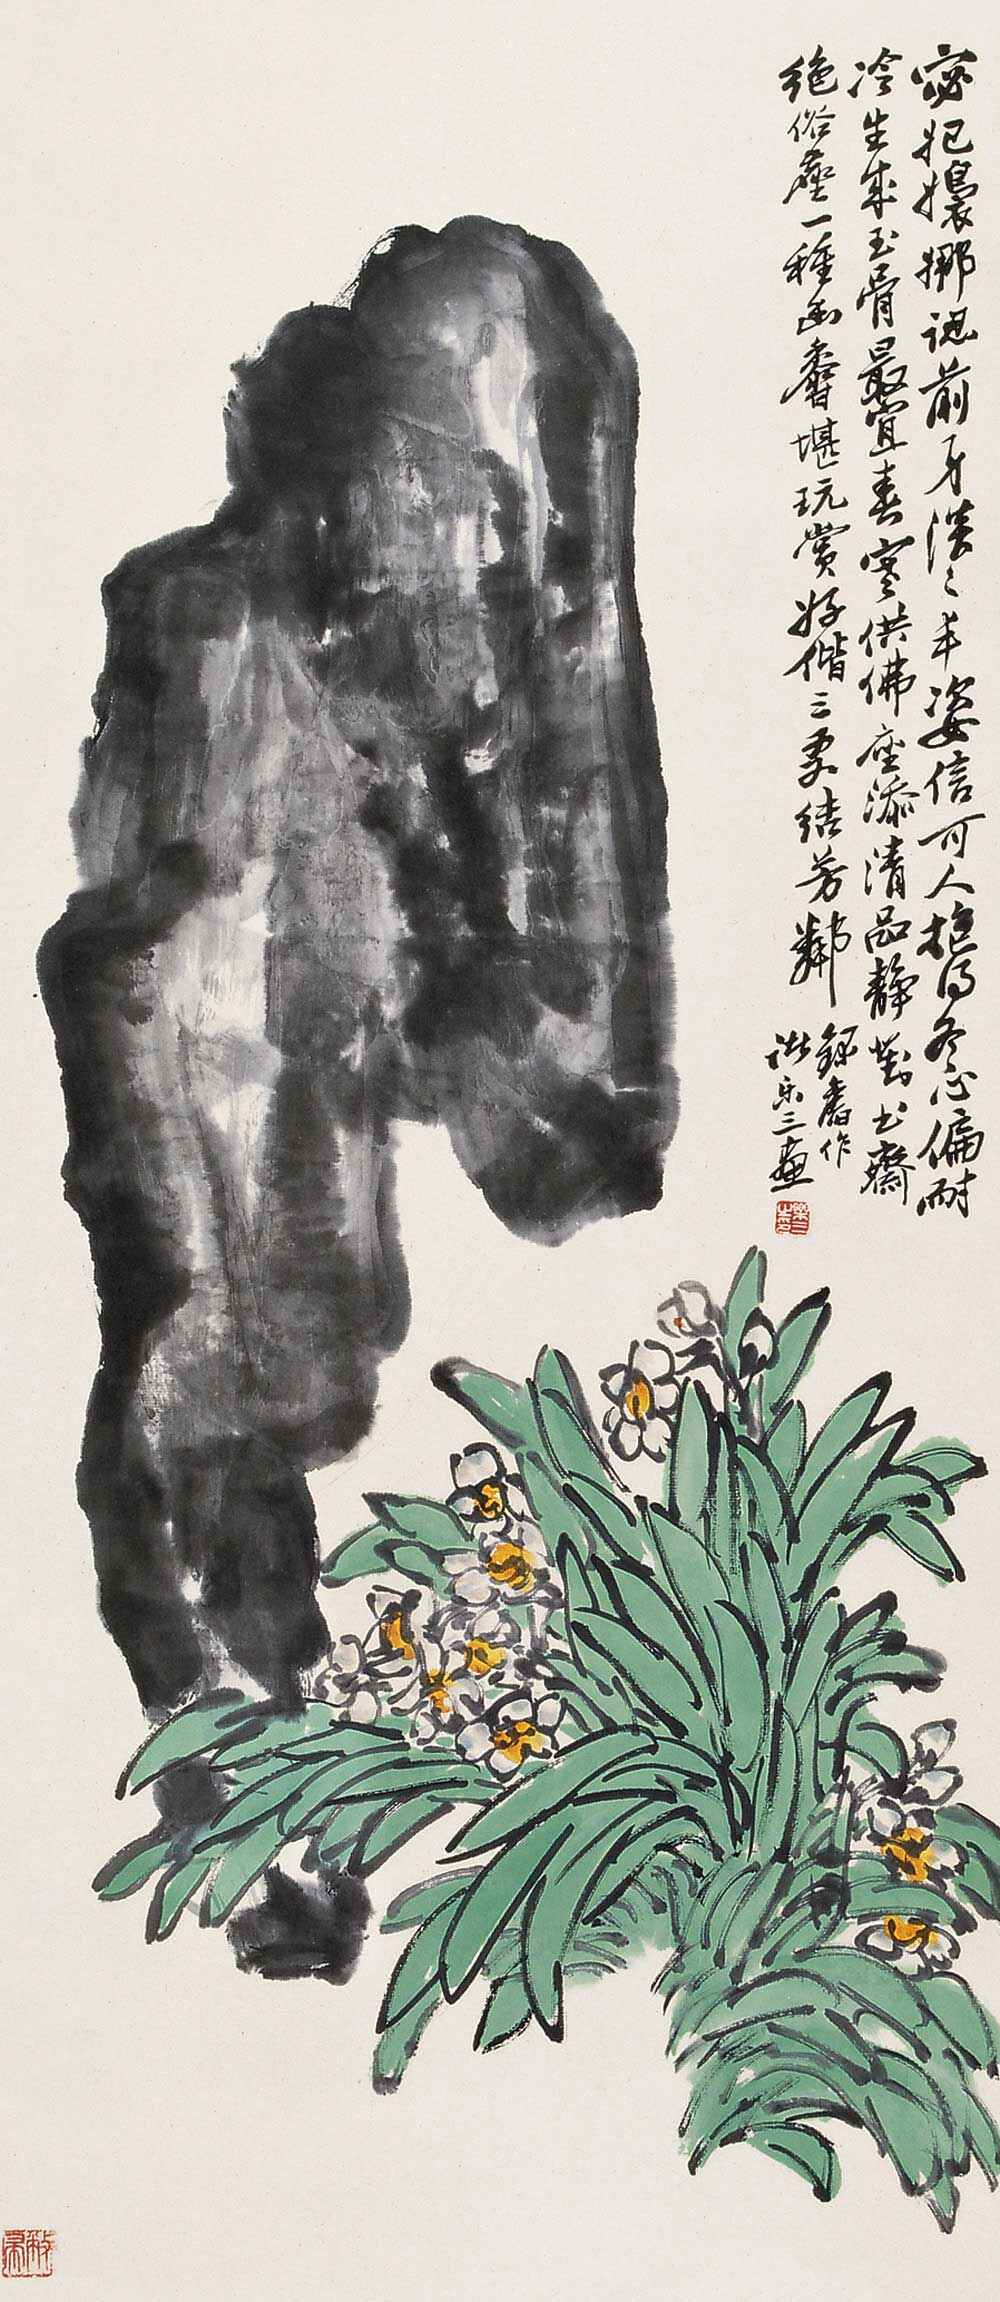 宓妃嬝娜認前身淡〻丰姿信可人抱得冬心偏耐
冷生成玉骨最宜春寒供佛座添清品靜對書齋
絕俗塵一種幽香堪玩賞好偕三友結芳鄰
錄舊作
諸樂三畫
樂三